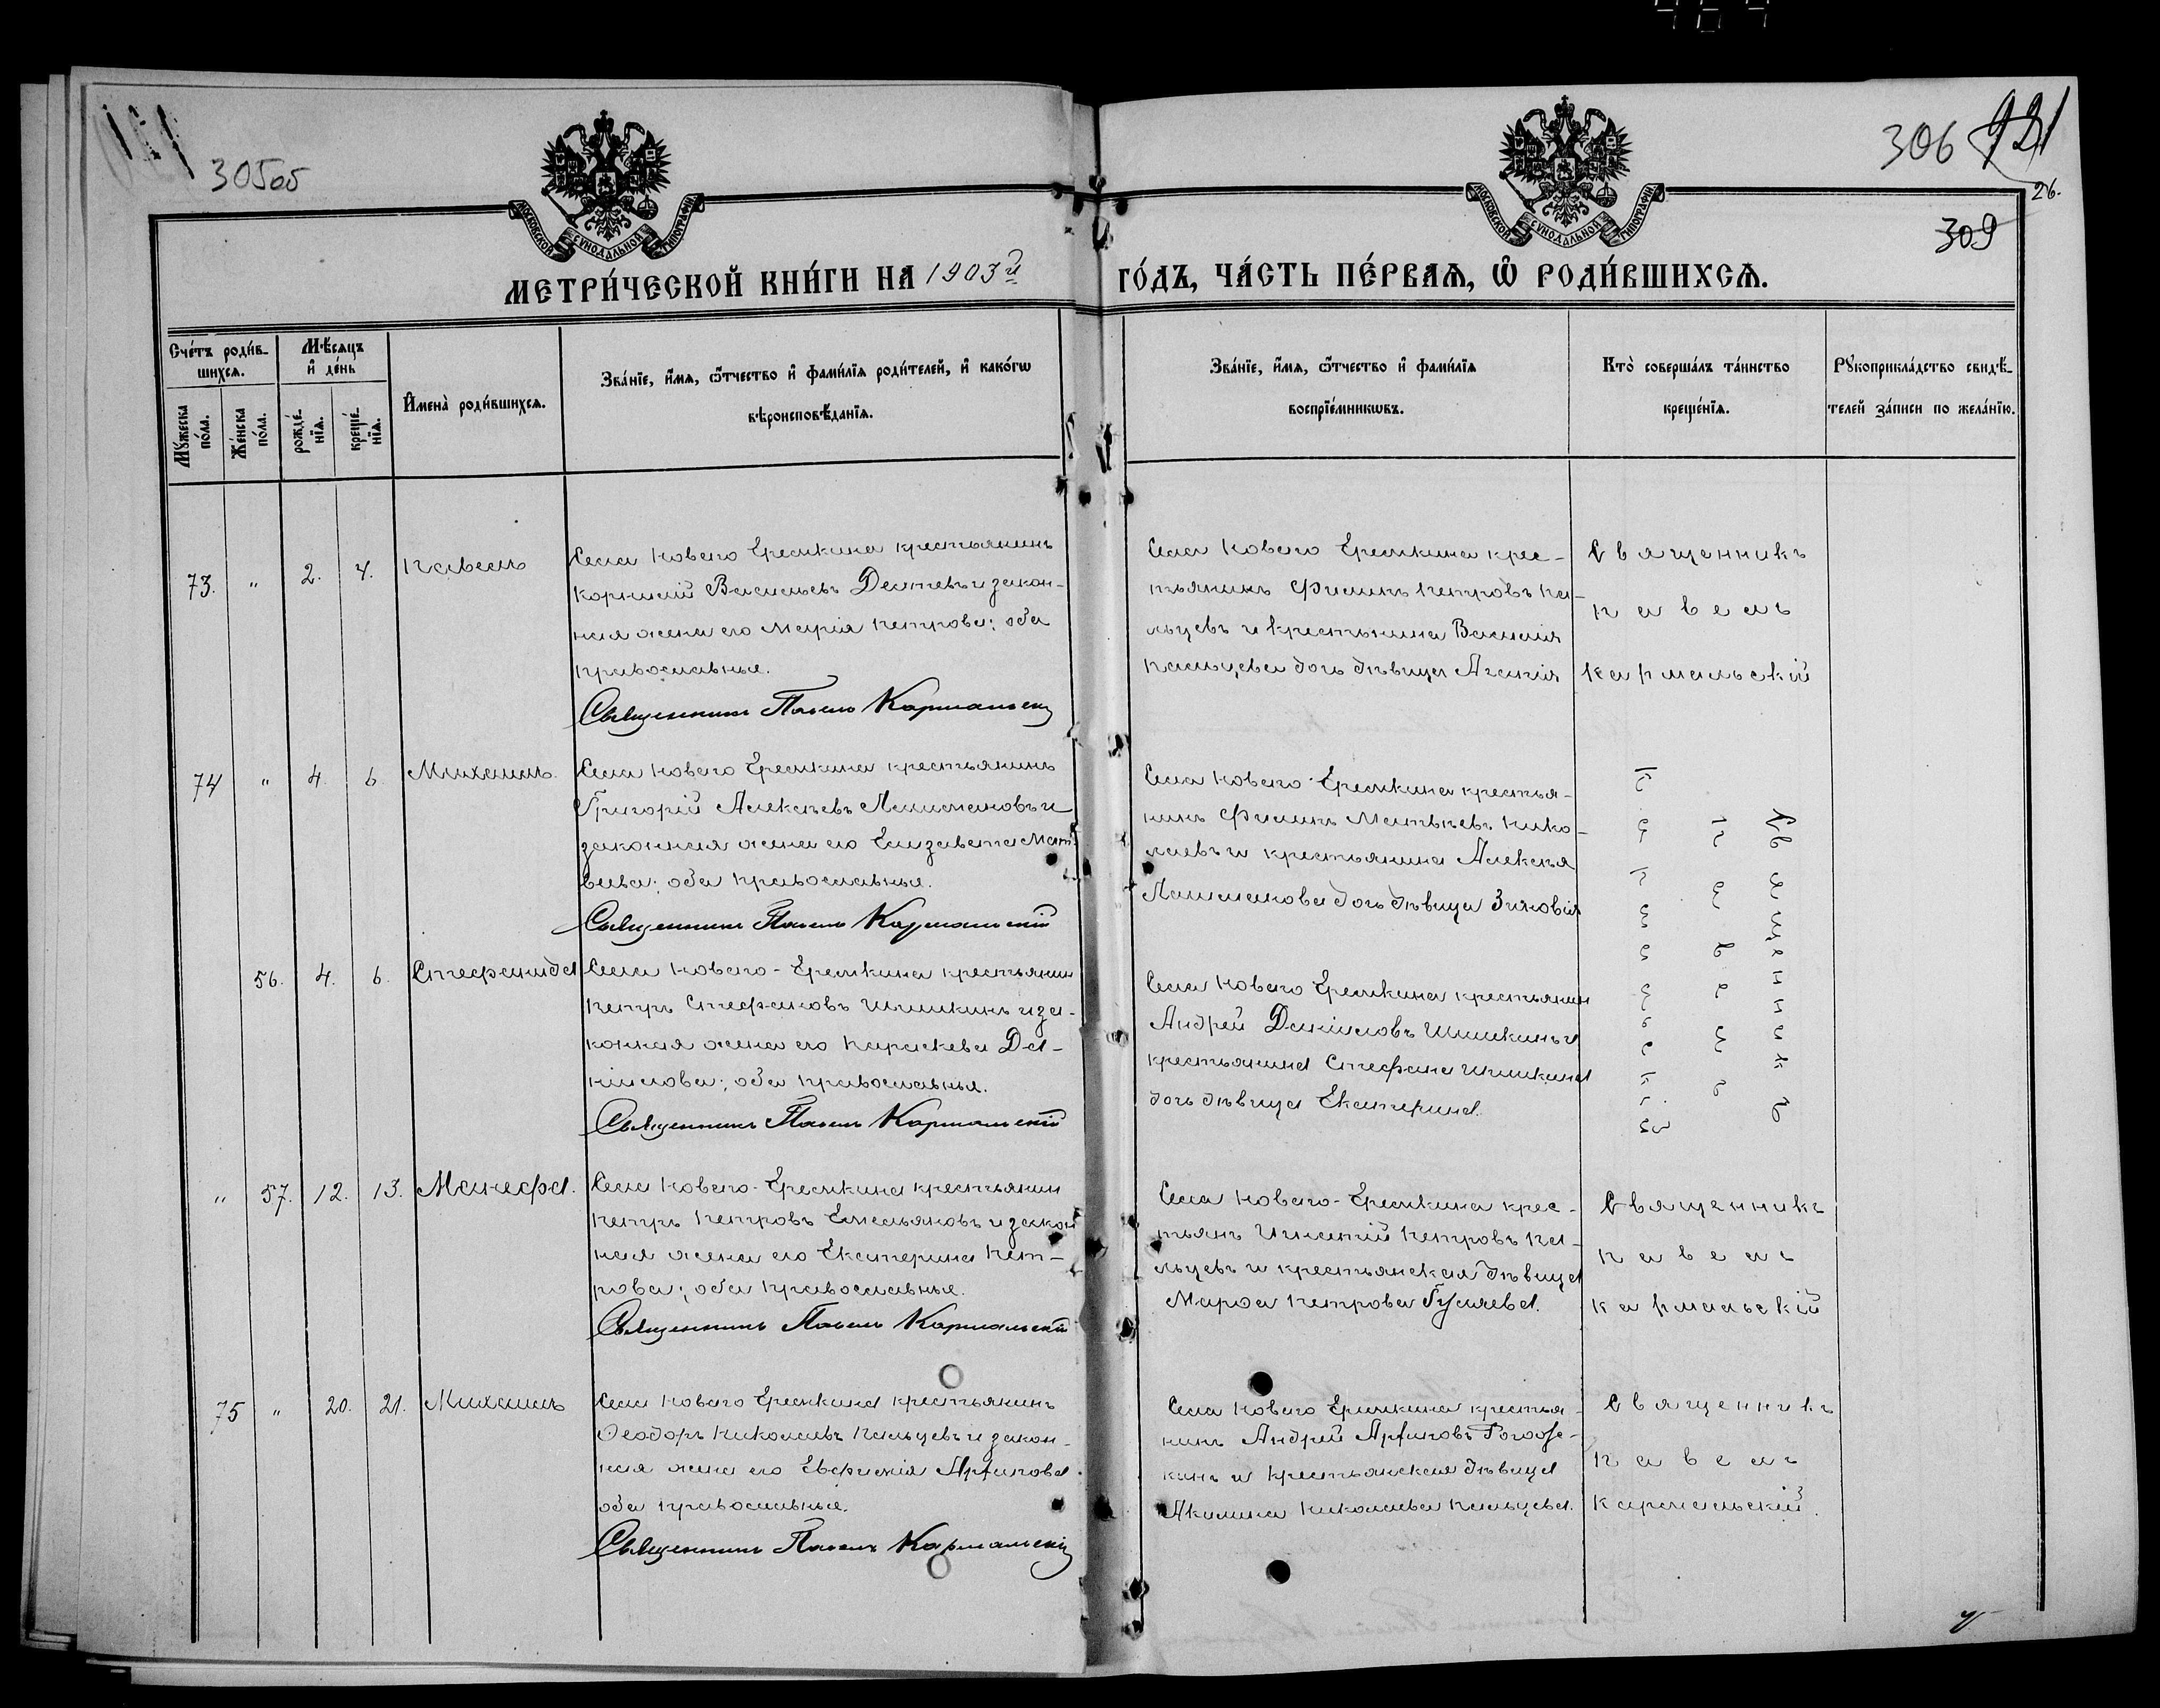 305об
306
921
26.
309
МОСКОВСКОЙ СѴНОДАЛЬНОЙ ТИПОГРАФІИ
МОСКОВСКОЙ СѴНОДАЛЬНОЙ ТИПОГРАФІИ
МЕТРИ́ЧЕСКОЙ КНИ́ГИ НА 1903й ГО́ДЪ, ЧА́СТЬ ПЕ́РВАѦ, Ѡ҆ РОДИ́ВШИХСѦ.
Сче́тъ роди́в-
шихсѧ.
Мѣ́сѧцъ
и҆ де́нь
Мꙋ́жеска
по́ла.
Же́нска
по́ла.
рожде́-
нїѧ.
креще́-
нїѧ.
И҆мена̀ роди́вшихсѧ.
Зва́нїе, и҆́мѧ, ѻ҆́тчество и҆ фами́лїѧ роди́телей, и҆ како́гѡ
вѣроисповѣ́данїѧ.
Зва́нїе, и҆́мѧ, ѻ҆́тчество и҆ фами́лїѧ
воспрїе́мникѡвъ.
Кто̀ соверша́лъ та́инство
креще́нїѧ.
Рꙋкоприкла́дство свидѣ́-
телей за́писи по жела́нїю.
73. " 2. 4. Павелъ
Села Новаго Еремкина крестьянинъ
Корнилій Васильевъ Деттевъ и закон-
ная жена его Марія Петрова; оба
православные.
Священникъ Павелъ Кармальскій
Села Новаго Еремкина крес-
тьянинъ Филипъ Петровъ Па-
льцевъ и крестьянина Василія
Пальцева дочь дѣвица Агапія
Священникъ
Павелъ
Кармальскій
74 " 4. 6. Михаилъ.
Села Новаго Еремкина крестьянинъ
Григорій Алексѣевъ Лашмановъ и
законная жена его Елизавета Мат-
вѣева; оба православные.
Священникъ Павелъ Кармальскій
Села Новаго Еремкина крестья-
нинъ Филипъ Матвѣевъ Нико-
лаевъ и крестьянина Алексѣя
Лашманова дочь дѣвица Зиновія
Священникъ
Павелъ
Кармальскій
56. 4. 6. Стефанида
Села Новаго-Еремкина крестьянин
Петръ Стефановъ Шишкинъ и за-
конная жена его Параскева Да-
ніилова; оба православные.
Священникъ Павелъ Кармальскій
Села Новаго Еремкина крестьянин
Андрей Даніиловъ Шишкинъ и
крестьянина Стефана Шишкина
дочь дѣвица Екатерина.
" 57. 12. 13. Манефа.
Села Новаго-Еремкина крестьянин
Петръ Петровъ Емельяновъ и закон
ная жена его Екатерина Пет-
рова; оба православные.
Священникъ Павелъ Кармальскій
Села Новаго-Еремкина крес-
тьянъ Игнатій Петровъ Па-
льцевъ и крестьянская дѣвица
Марѳа Петрова Гуляева.
Священникъ
Павелъ
Кармальскій
75 " 20. 21. Михаилъ
Села Новаго Еремкина крестьянинъ
Ѳеодоръ Николаевъ Пальцевъ и закон-
ная жена его Евфимія Архипова
оба православные.
Священникъ Павелъ Кармальскій
Села Новаго Еремкина крестья-
нинъ Андрей Архиповъ
и крестьянская дѣвица
Акилина Николаева Пальцева.
Священникъ
Павелъ
Кармальскій.